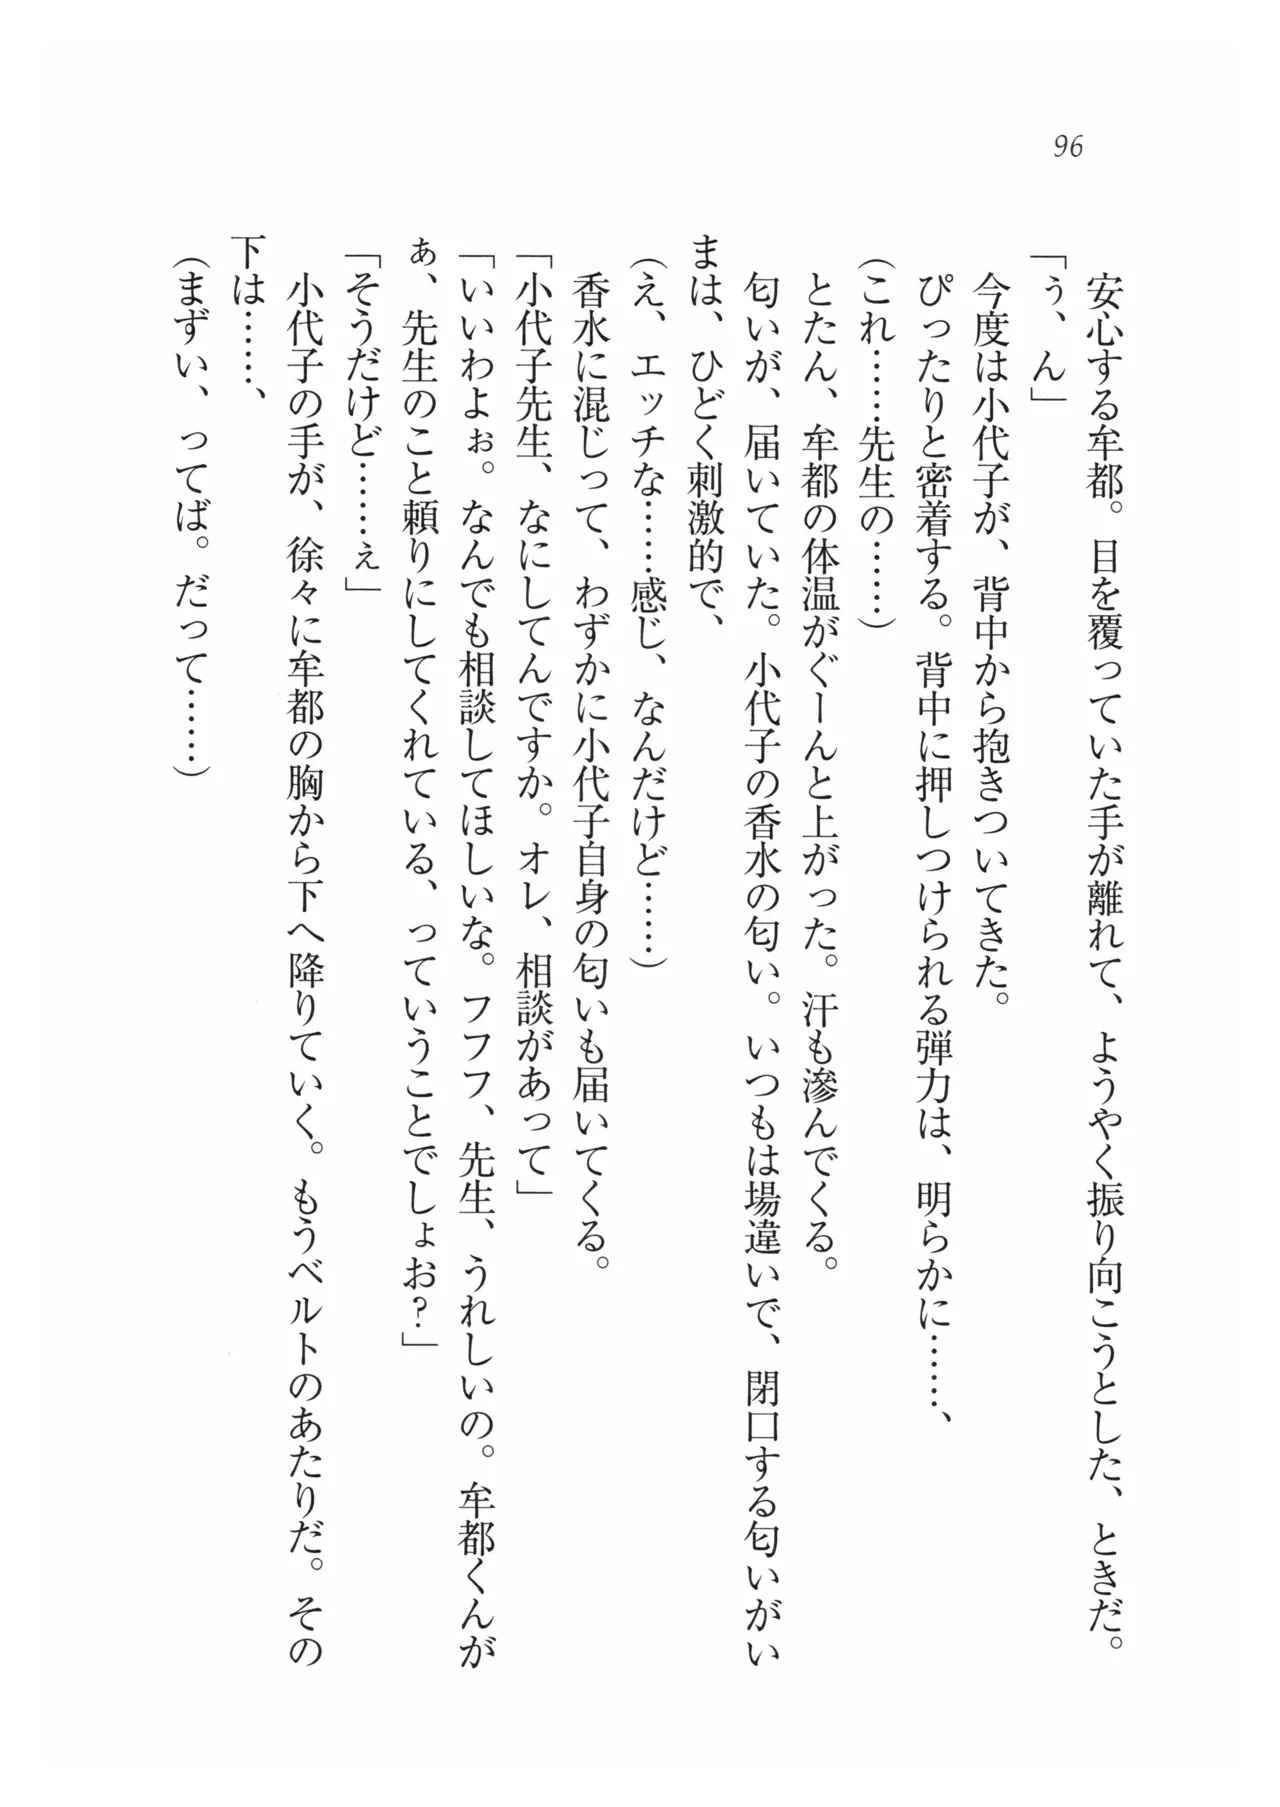 96
安心する牟都。目を覆っていた手が離れて、ようやく振り向こうとした、ときだ。
「ぅ、ん」
今度は小代子が、背中から抱きついてきた。
ぴったりと密着する。背中に押しつけられる弾力は、明らかに……、
(これ……先生の……)
とたん、牟都の体温がぐーんと上がった。汗も滲んでくる。
匂いが、届いていた。小代子の香水の匂い。いつもは場違いで、閉口する匂いがい
まは、ひどく刺激的で、
(え、エッチな……感じ、なんだけど……)
香水に混じって、わずかに小代子自身の匂いも届いてくる。
「小代子先生、なにしてんですか。オレ、相談があって」
「いいわよぉ。なんでも相談してほしいな。フフフ、先生、うれしいの。牟都くんが
ぁ、先生のこと頼りにしてくれている、っていうことでしょお?」
「そうだけど……ぇ」
小代子の手が、徐々に牟都の胸から下へ降りていく。もうベルトのあたりだ。その
下は……、
(まずい、ってば。だって……)